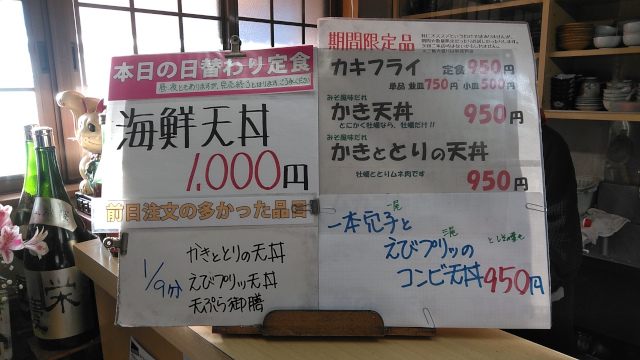 本日の日替わり定食
昼・夜ともありますが、完売終了となります。ご了承ください
海鮮天丼
1,000円
前日注文の多かった品
1/9分
かきととりの天丼
えびプリッ天丼
天ぷら御膳
期間限定品
カキフライ 定食950円
単品 並皿750円 小皿500円
みそ風味だれ
かき天丼 950円
とにかく牡蠣なら、牡蠣だけ!!
みそ風味だれ
かきととりの天丼
牡蠣ととりムネ肉です 950円
一本穴子と
えびプリッの
コンビ天丼950円
栄